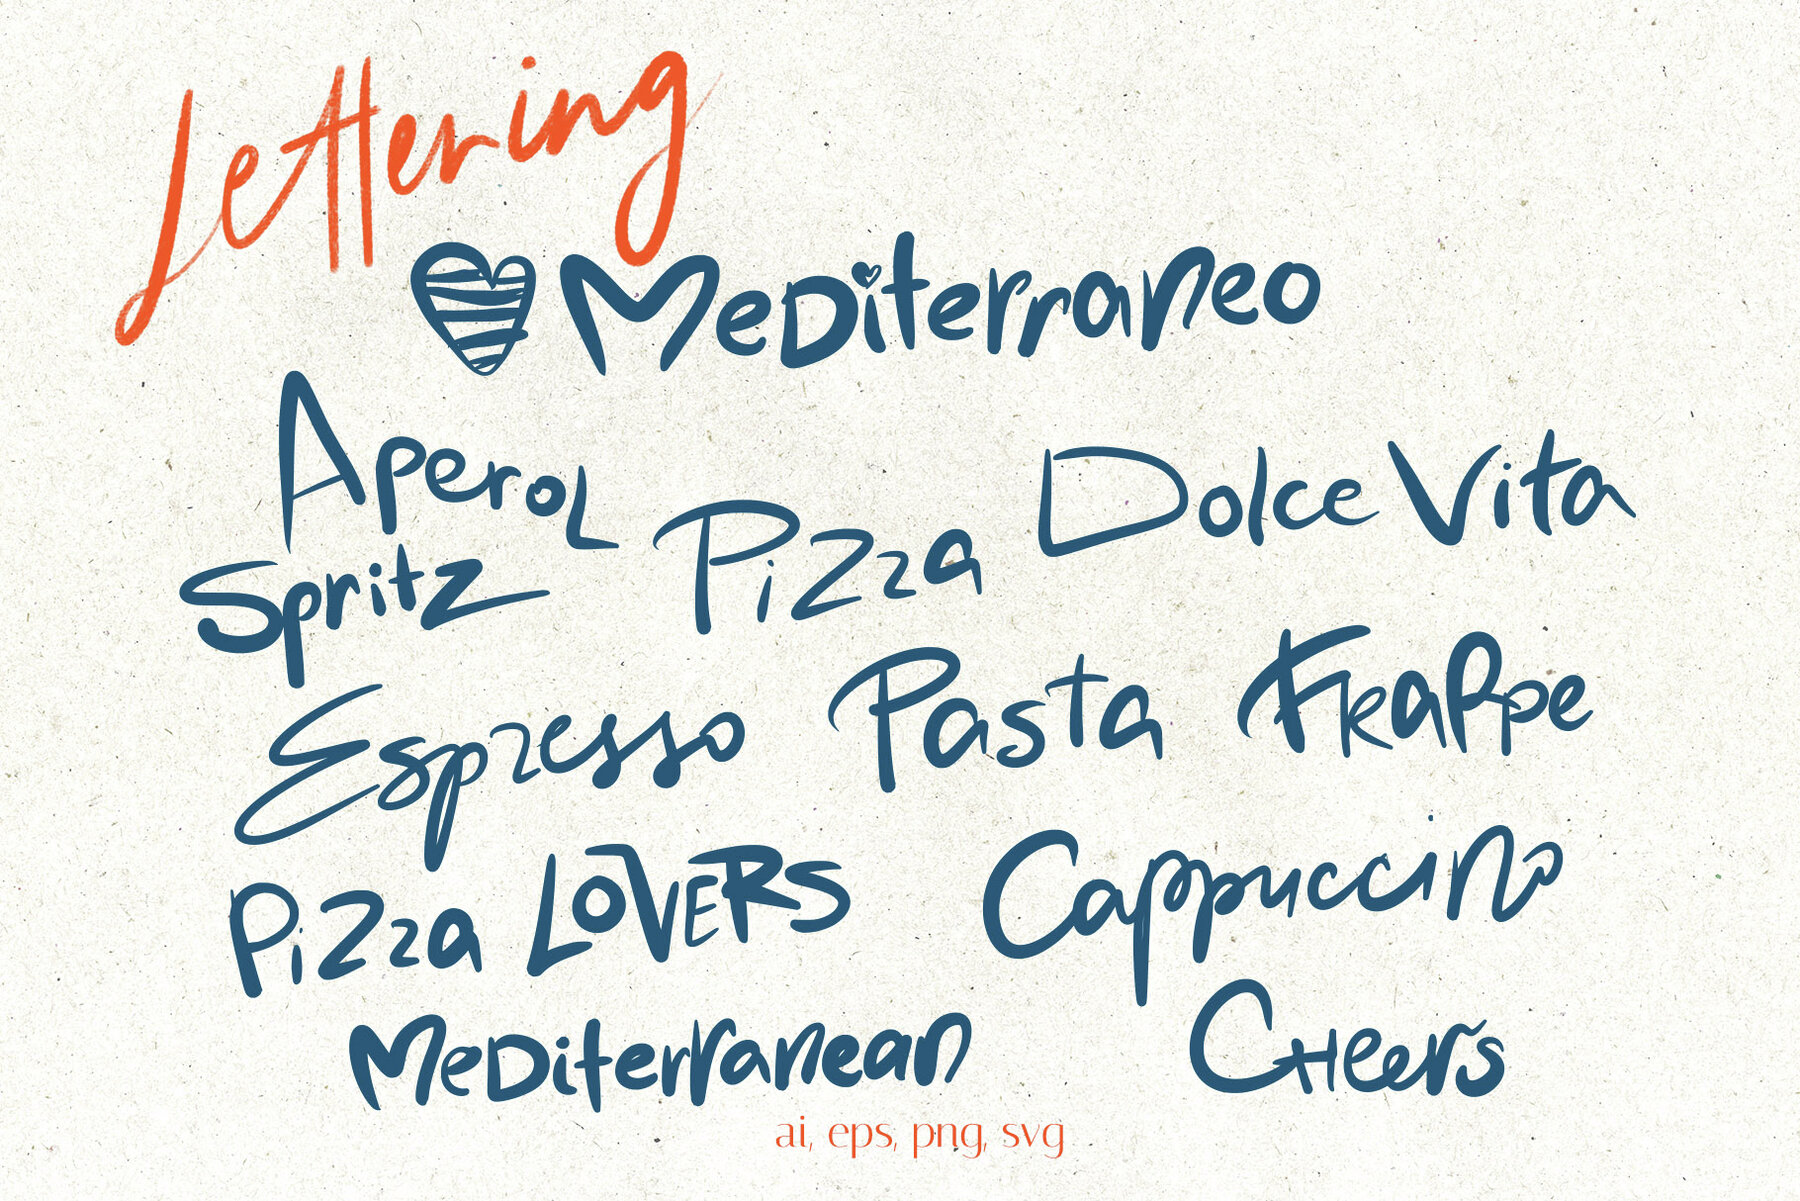 Lettering
Mediterraneo
Aperol
Spritz
Pizza
Dolce Vita
Espresso
Pasta
Frappe
Pizza LOVERS
Cappuccino
Mediterranean
Cheers
ai, eps, png, svg